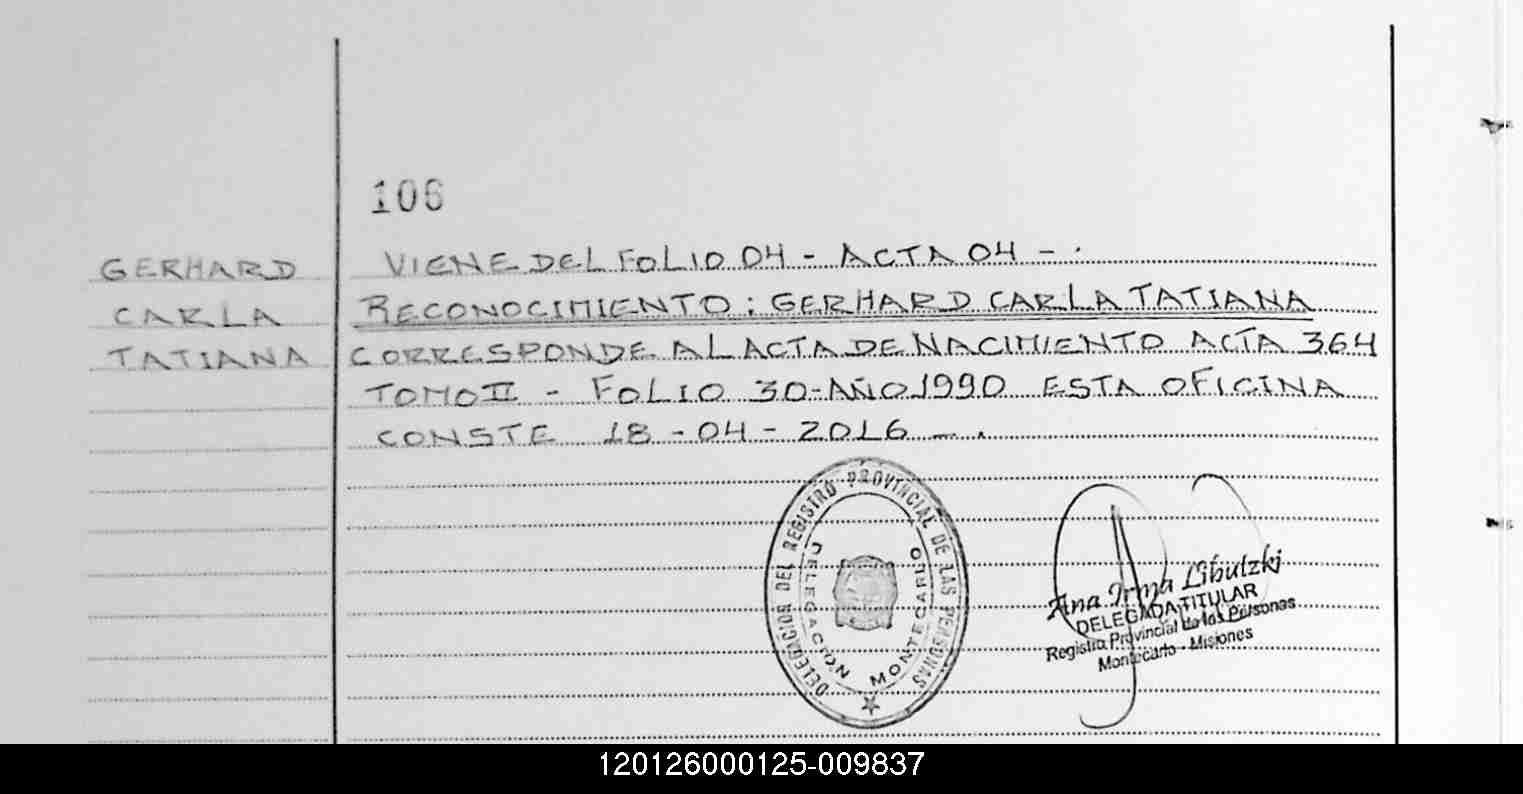 106
GERHARD
CARLA
TATIANA
VIENE DEL FOLIO 04 - ACTA 04 - .
RECONOCIMIENTO : GERHARD CARLA TATIANA
CORRESPONDE AL ACTA DE NACIMIENTO ACTA 364
TOMO II - FOLIO 30-AÑO 1990 ESTA OFICINA
CONSTE 18 - 04 - 2016 - .
DELEGACION DEL REGISTRO PROVINCIAL DE LAS PERSONAS
DELEGACIÓN MONTECARLO
Ana Irma Libutzki
DELEGADA TITULAR
Registro Provincial de las Personas
Montecarlo - Misiones
120126000125-009837